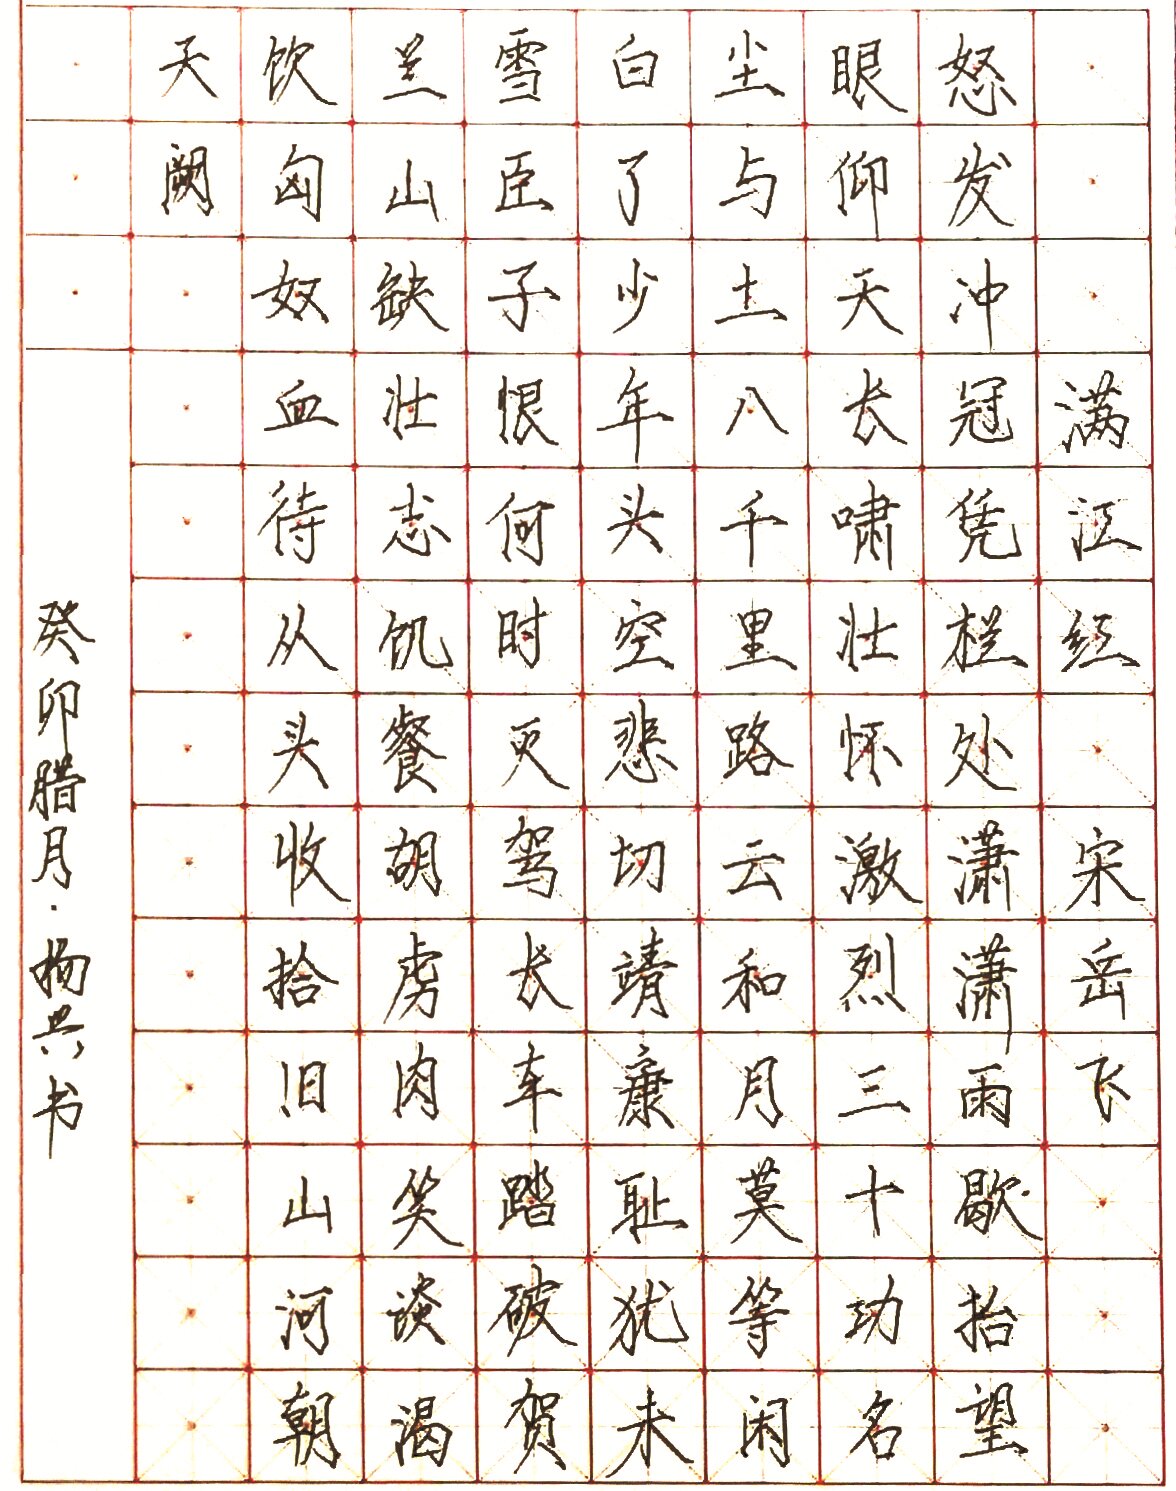 满江红 宋岳飞
怒发冲冠凭栏处潇潇雨歇抬望
眼仰天长啸壮怀激烈三十功名
尘与土八千里路云和月莫等闲
白了少年头空悲切靖康耻犹未
雪臣子恨何时灭驾长车踏破贺
兰山缺壮志饥餐胡虏肉笑谈渴
饮匈奴血待从头收拾旧山河朝
天阙
癸卯腊月·书